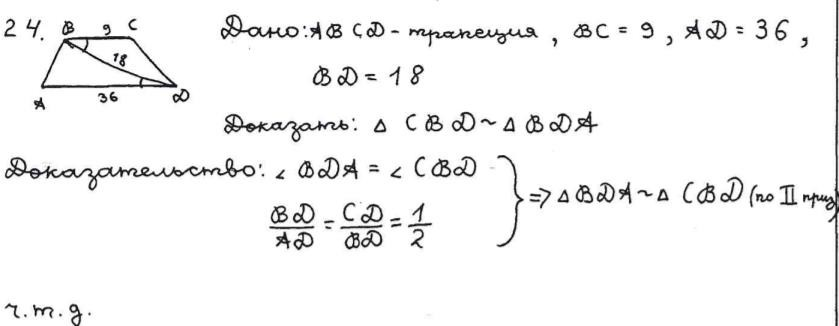 24. B 9 C Дано: ABCD - трапеция, BC = 9, AD = 36,
18 BD = 18
A 36 D
Доказать: Δ CBD ~ Δ BDA
Доказательство: ∠ BDA = ∠ CBD
BD/AD = CD/BD = 1/2 } => Δ BDA ~ Δ CBD (по II приз)
ч.т.д.